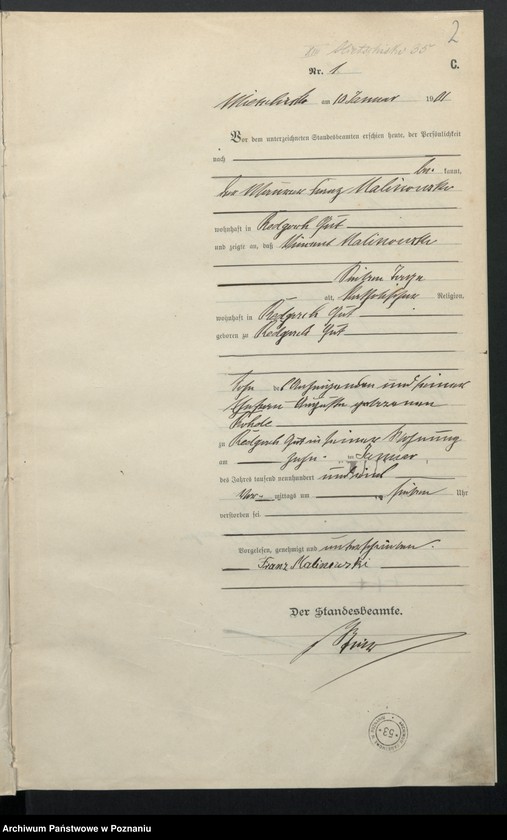 2
Nr. 1.
C.
am 10 Januar 1901
Vor dem unterzeichneten Standesbeamten erschien heute, der Persönlichkeit
nach
be kannt,
der Maurer Franz Malinowski
wohnhaft in Redgosch Gut
und zeigte an, daß Vincent Malinowski
sieben Tage
alt, katholischer Religion,
wohnhaft in Redgosch Gut
geboren zu Redgosch Gut
Sohn des Anzeigenden und seiner
Ehefrau Auguste geborenen
zu Redgosch Gut in seiner Wohnung
am zehn ten Januar
des Jahres tausend neunhundert und eins
Vor mittags um sieben Uhr
verstorben sei
Vorgelesen, genehmigt und unterschrieben.
Franz Malinowski
Der Standesbeamte.
53
Archiwum Państwowe w Poznaniu